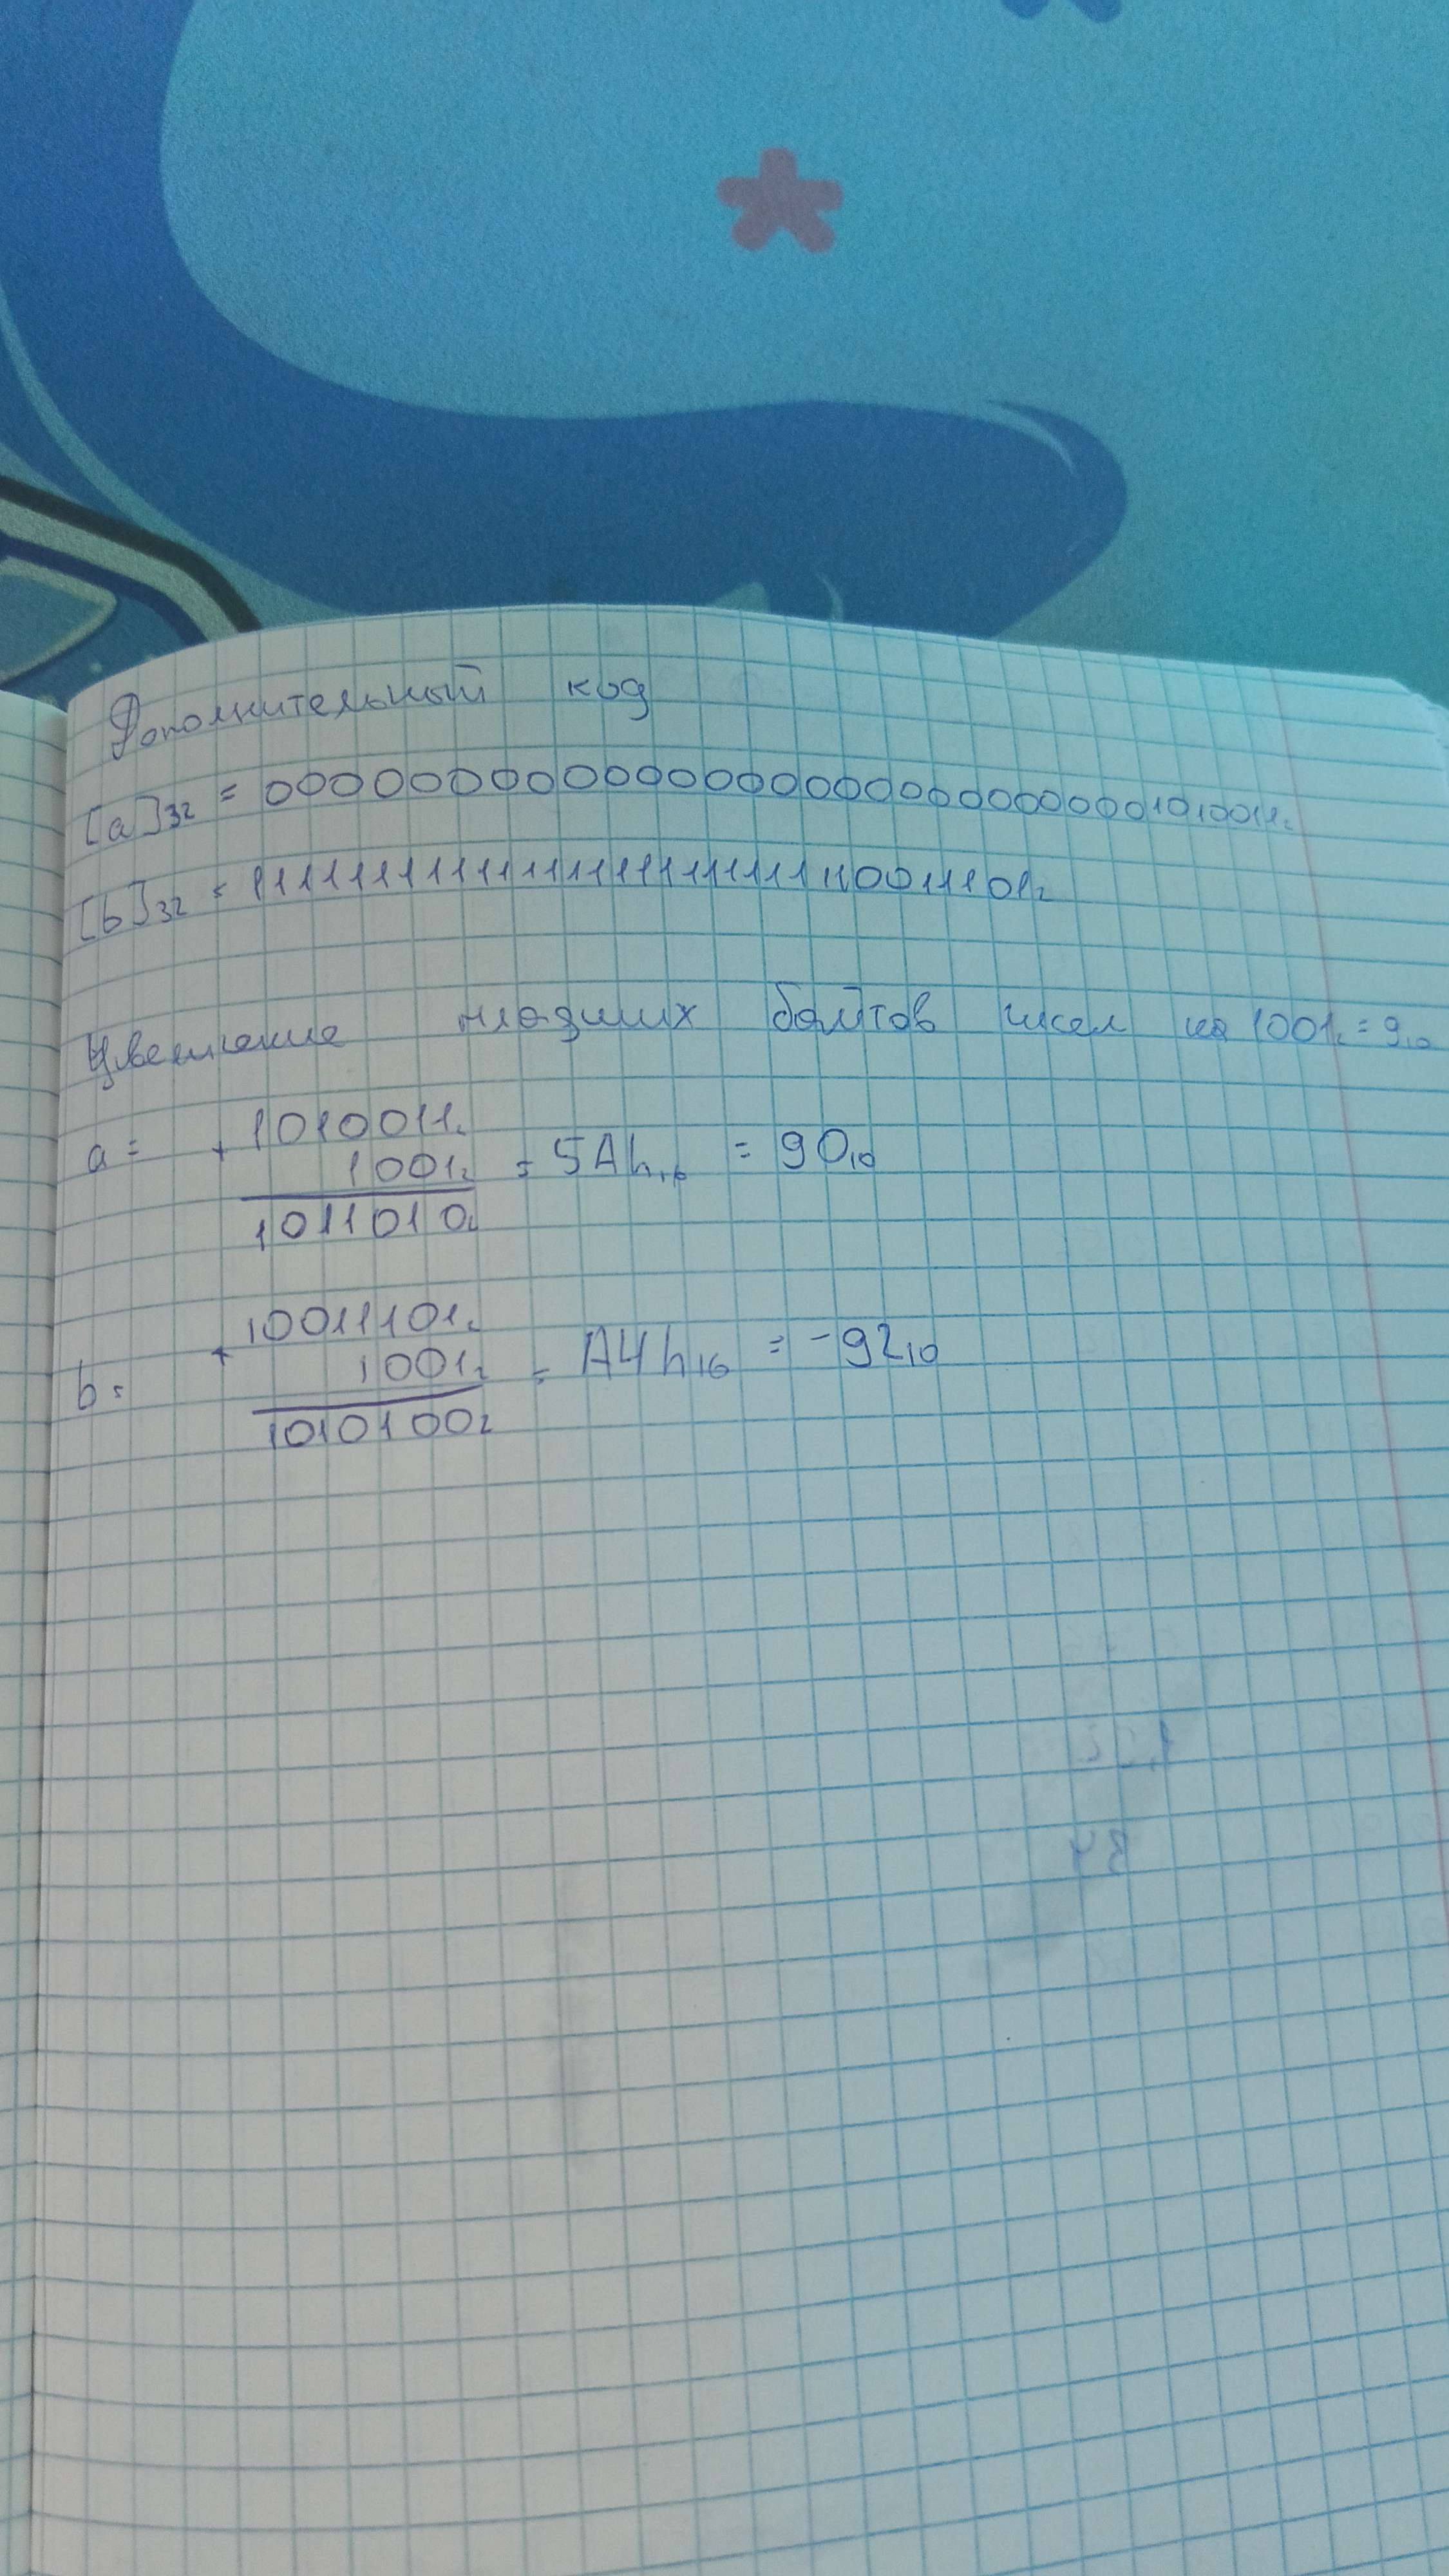 Дополнительный код
[a]32 = 00000000000000000000000001010011₂
[b]32 = 11111111111111111111111110011101₂
Увеличение младших байтов чисел на 1001₂ = 9₁₀
a = + 1010011₂
1001₂ = 5Ah₁₆ = 90₁₀
1011010₂
b = + 10011101₂
1001₂ = A4h₁₆ = -92₁₀
10100100₂